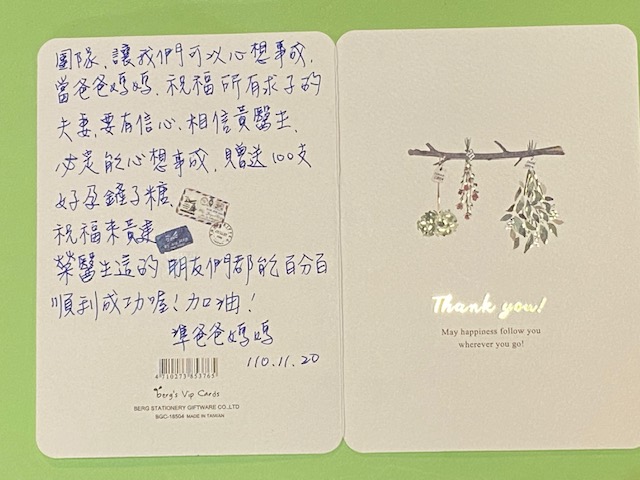 團隊、讓我們可以心想事成,
當爸爸媽媽、祝福所有求子的
夫妻,要有信心、相信黃醫生,
必定能心想事成,贈送100支
好孕鏟子糖、
祝福來黃建
榮醫生這的朋友們都能百分百
順利成功喔!加油!
準爸爸媽媽
110.11.20
4710273853765
berg's Vip Cards
BERG STATIONERY GIFTWARE CO.,LTD
SGC-18504 MADE IN TAIWAN
Thank you!
May happiness follow you
wherever you go!